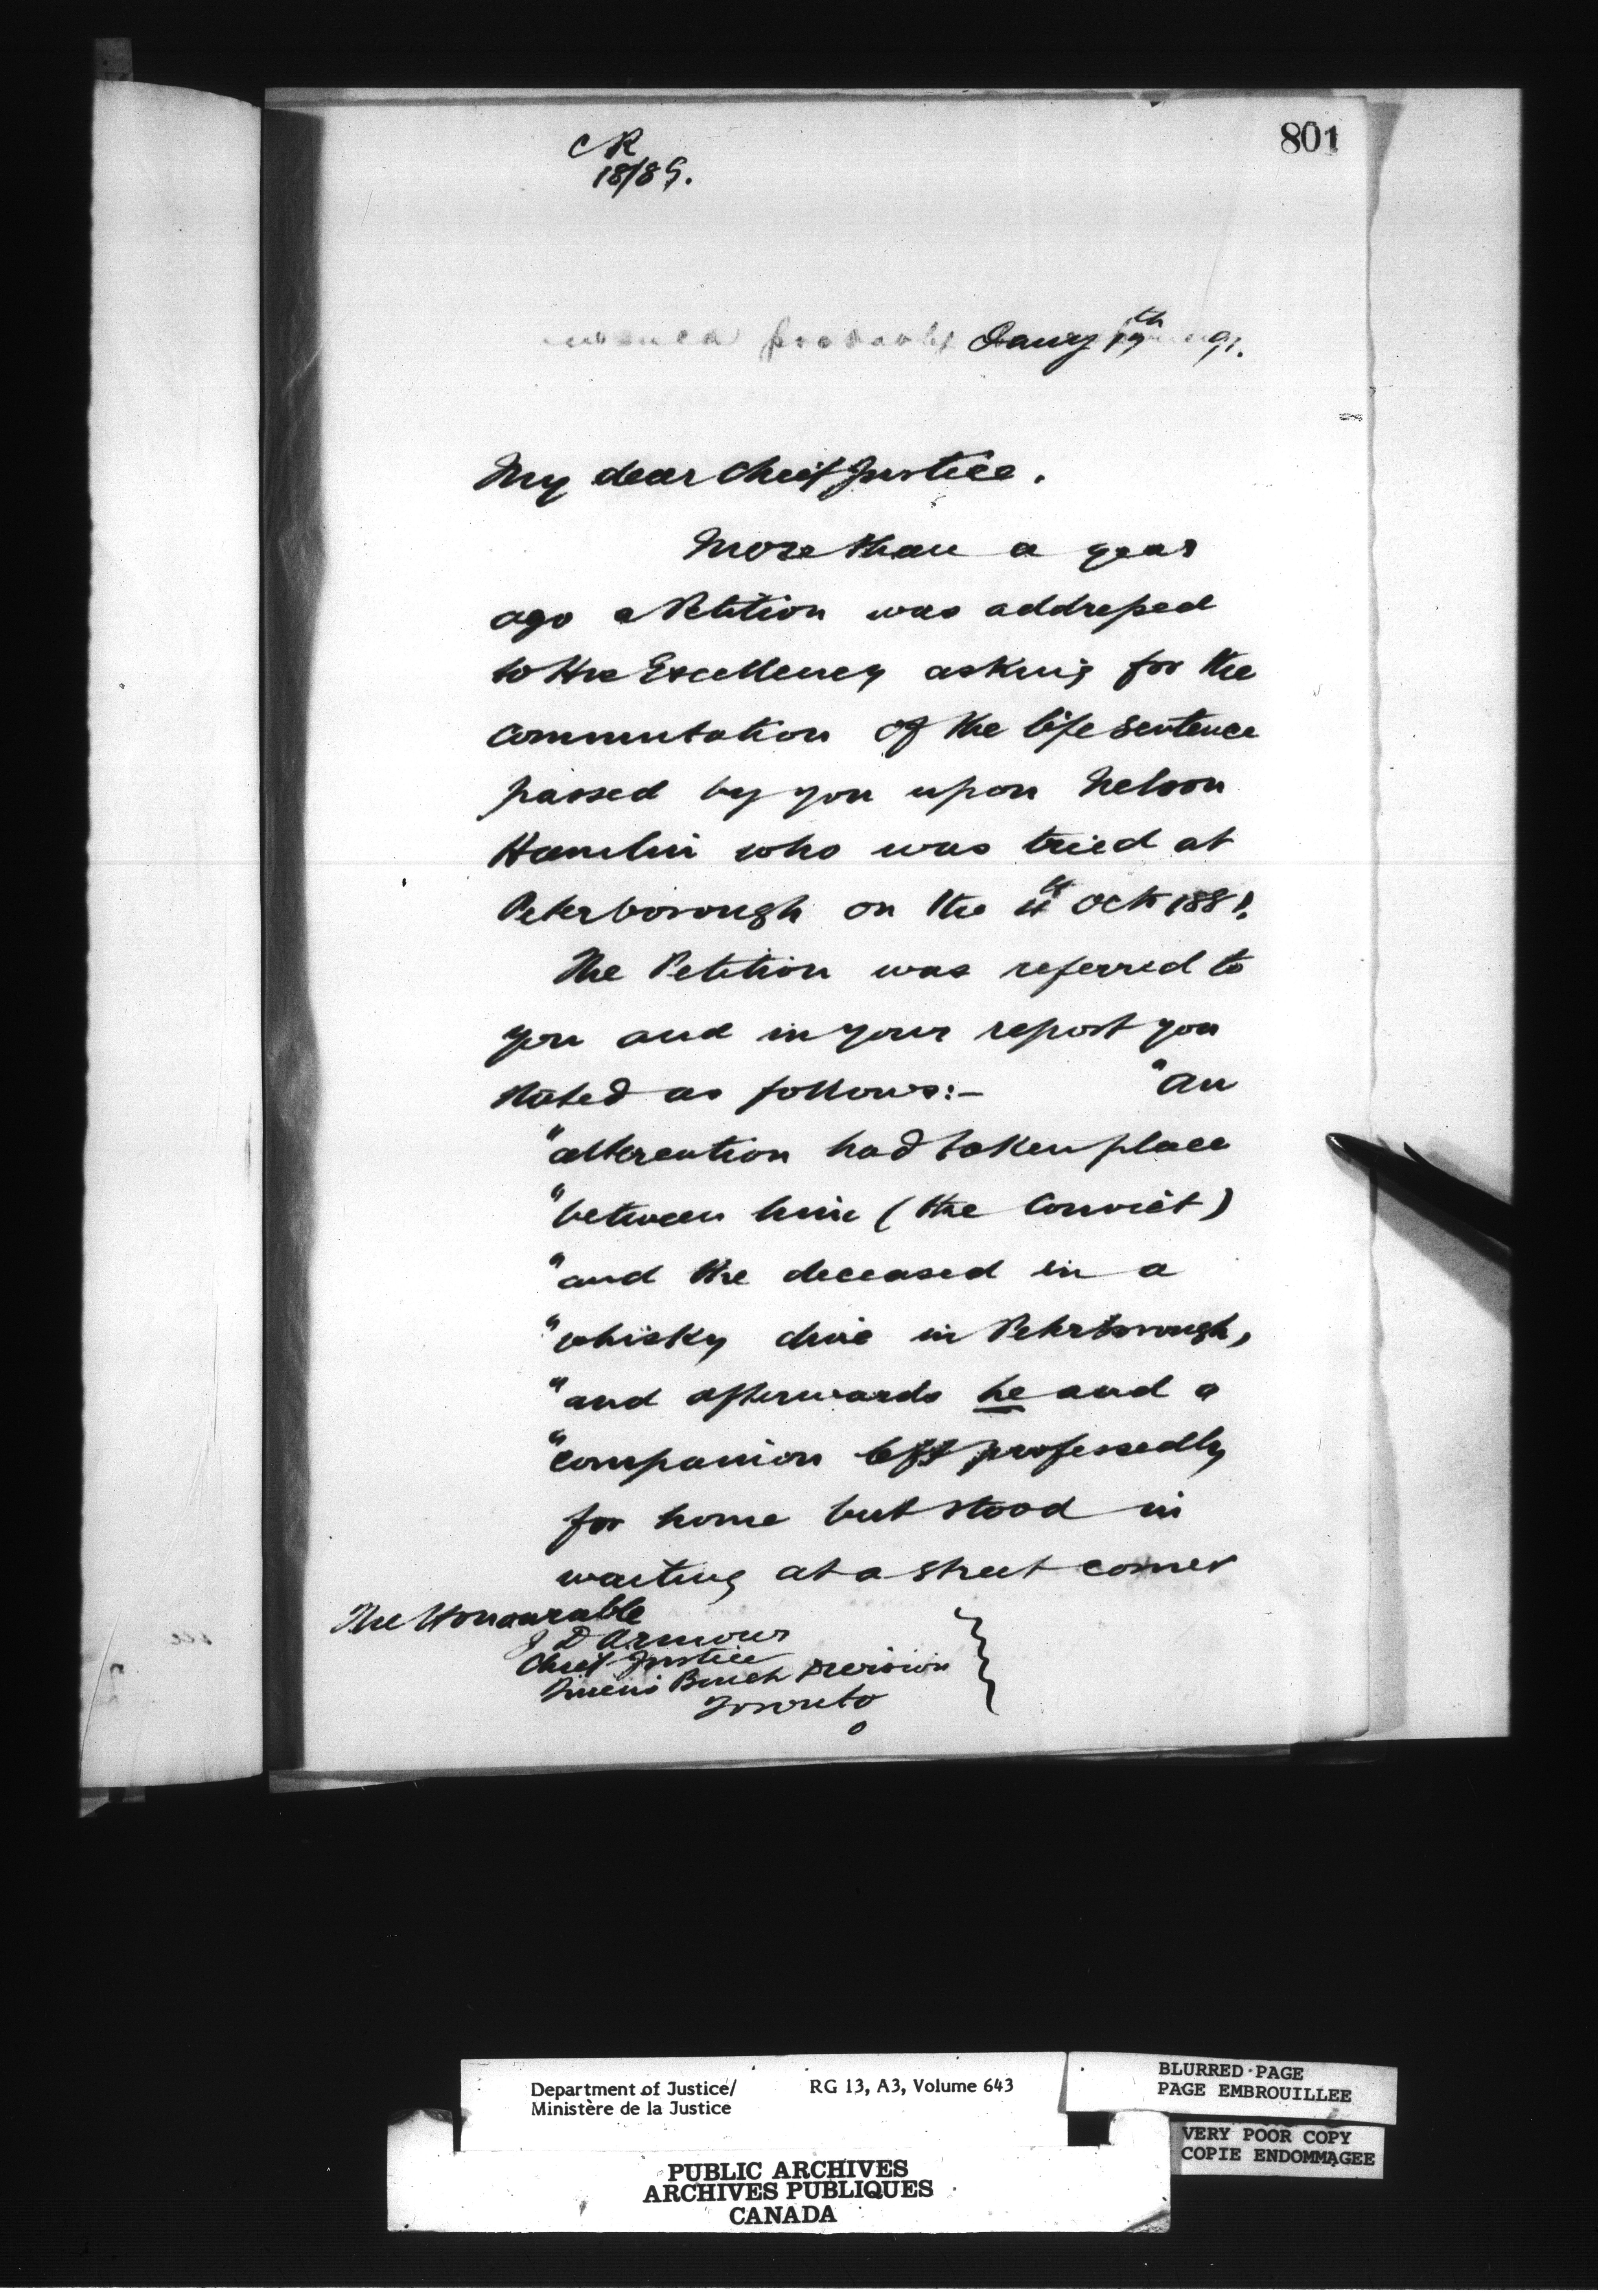 801
CR
18/89.
Jany 19th 91.
My dear Chief Justice.
More than a year
ago a Petition was addressed
to His Excellency asking for the
commutation of the life sentence
passed by you upon Nelson
Hamlin who was tried at
Peterborough on the 11th Oct 1881.
The Petition was referred to
you and in your report you
stated as follows:- "An
"altercation had taken place
"between him (the Convict)
"and the deceased in a
"whisky dive in Peterborough,
"and afterwards he and a
"companion left professedly
for home but stood in
waiting at a street corner
The Honourable
J D Armour
Chief Justice
Queens Bench Division
Toronto
Department of Justice/
Ministère de la Justice
RG 13, A3, Volume 643
BLURRED PAGE
PAGE EMBROUILLEE
VERY POOR COPY
COPIE ENDOMMAGEE
PUBLIC ARCHIVES
ARCHIVES PUBLIQUES
CANADA